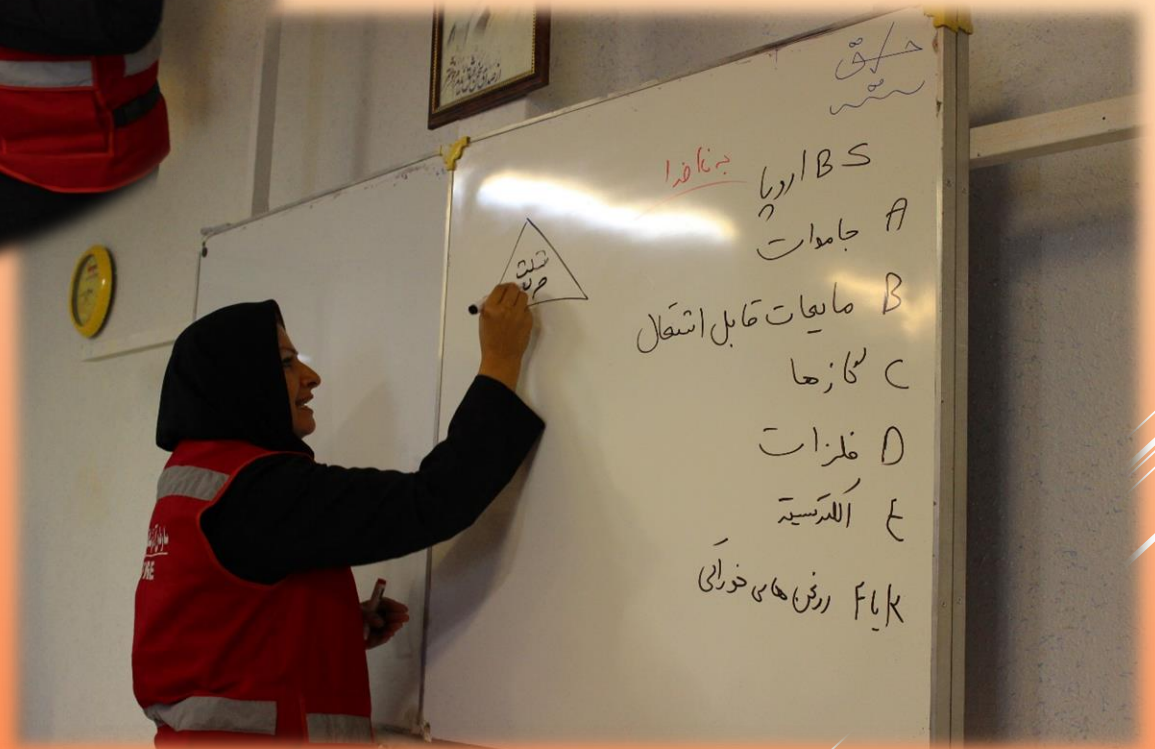 به نام خدا
BS اروپا
A جامدات
B مایعات قابل اشتعال
C گازها
D فلزات
E الکتریسیته
K یا F روغن های خوراکی
مثلث